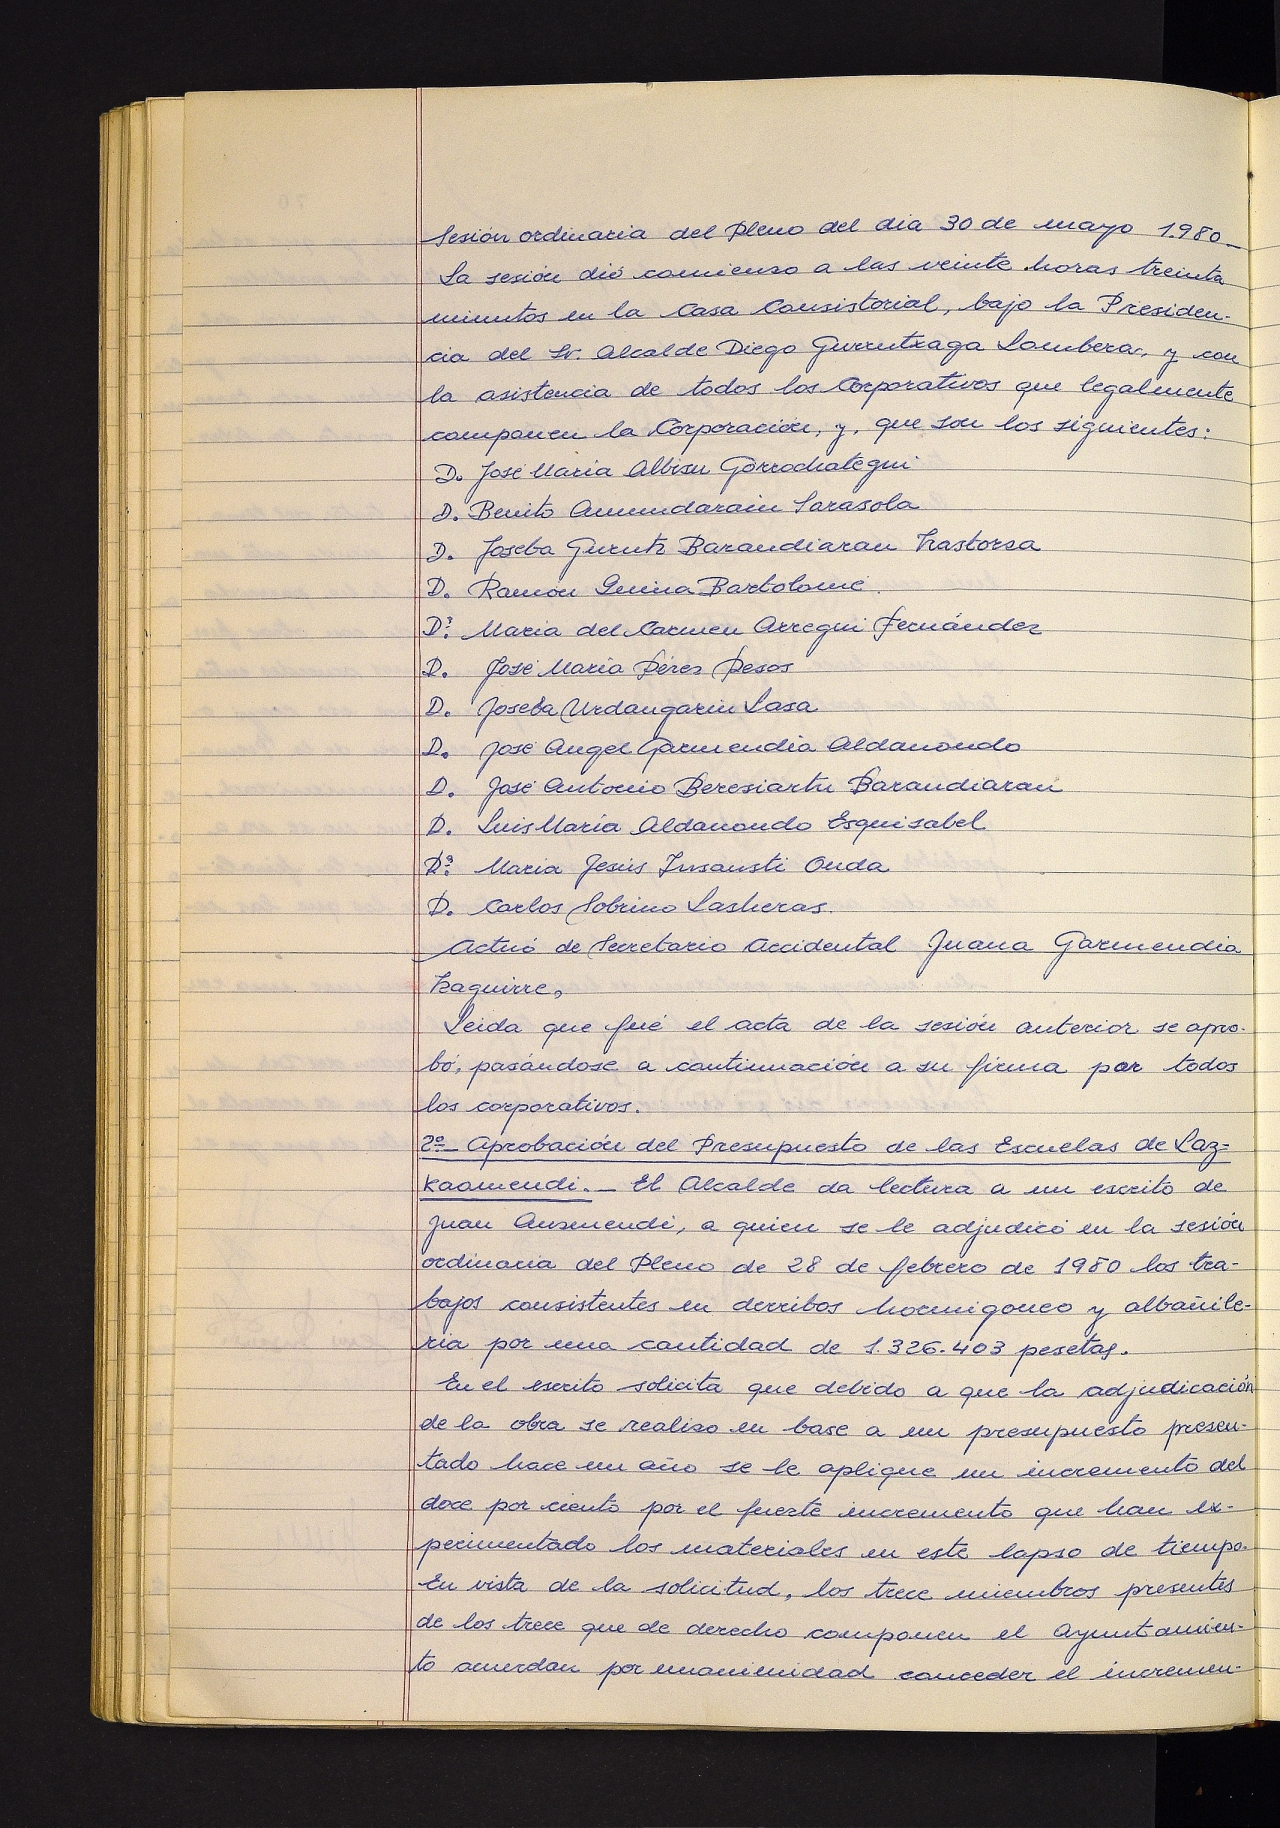 Sesión ordinaria del Pleno del dia 30 de mayo 1.980_
La sesión dió comienzo a las veinte horas treinta
minutos en la Casa Consistorial, bajo la Presiden-
cia del Sr. Alcalde Diego Gurrutxaga Lambera, y con
la asistencia de todos los Corporativos que legalmente
componen la Corporación, y, que son los siguientes:
D. José Maria Albisu Gorrochategui
D. Benito Amundarain Sarasola
D. Joseba Gurutz Barandiaran Izastorza
D. Ramón Bartolomé.
Dª. Maria del Carmen Arregui Fernández
D. José Maria Pérez Pesos
D. Joseba Urdangarin Lasa
D. José Angel Garmendia Aldanondo
D. José Antonio Beresiartu Barandiaran
D. Luis Maria Aldanondo Esquisabel
Dª. Maria Jesús Insausti Onda
D. Carlos Sobrino Lasheras.
Actuó de Secretario Accidental Juana Garmendia
Izaguirre,
Leida que fué el acta de la sesión anterior se apro-
bó, pasándose a continuación a su firma por todos
los corporativos.
2º_ Aprobación del Presupuesto de las Escuelas de Laz=
kaomendi._ El Alcalde da lectura a un escrito de
Juan Ausmendi, a quien se le adjudicó en la sesión
ordinaria del Pleno de 28 de febrero de 1980 los tra-
bajos consistentes en derribos hormigoneo y albañile-
ria por una cantidad de 1.326.403 pesetas.
En el escrito solicita que debido a que la adjudicación
de la obra se realizo en base a un presupuesto presen-
tado hace un año se le aplique un incremento del
doce por ciento por el fuerte incremento que han ex-
perimentado los materiales en este lapso de tiempo.
En vista de la solicitud, los trece miembros presentes
de los trece que de derecho componen el Ayuntamien-
to acuerdan por unanimidad conceder el incremen-